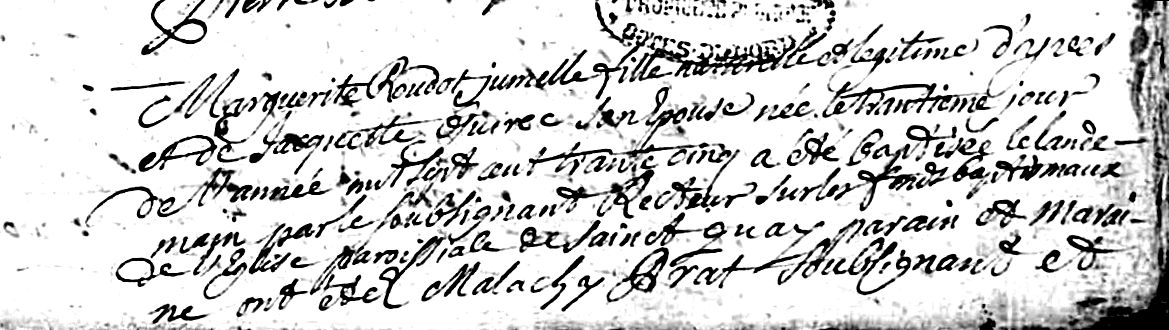 Marguerite Roudot jumelle fille naturelle et legitime d'yves
et de Jacquette son Epouse née le trantieme jour
de l'année mil sept cent trante cinq a été baptisée le lande-
main par le soubsignant Recteur sur les fonds baptismaux
de l'Eglise paroissiale de sainct quay parain et marai-
ne ont été Malachy Brat soubsignant et